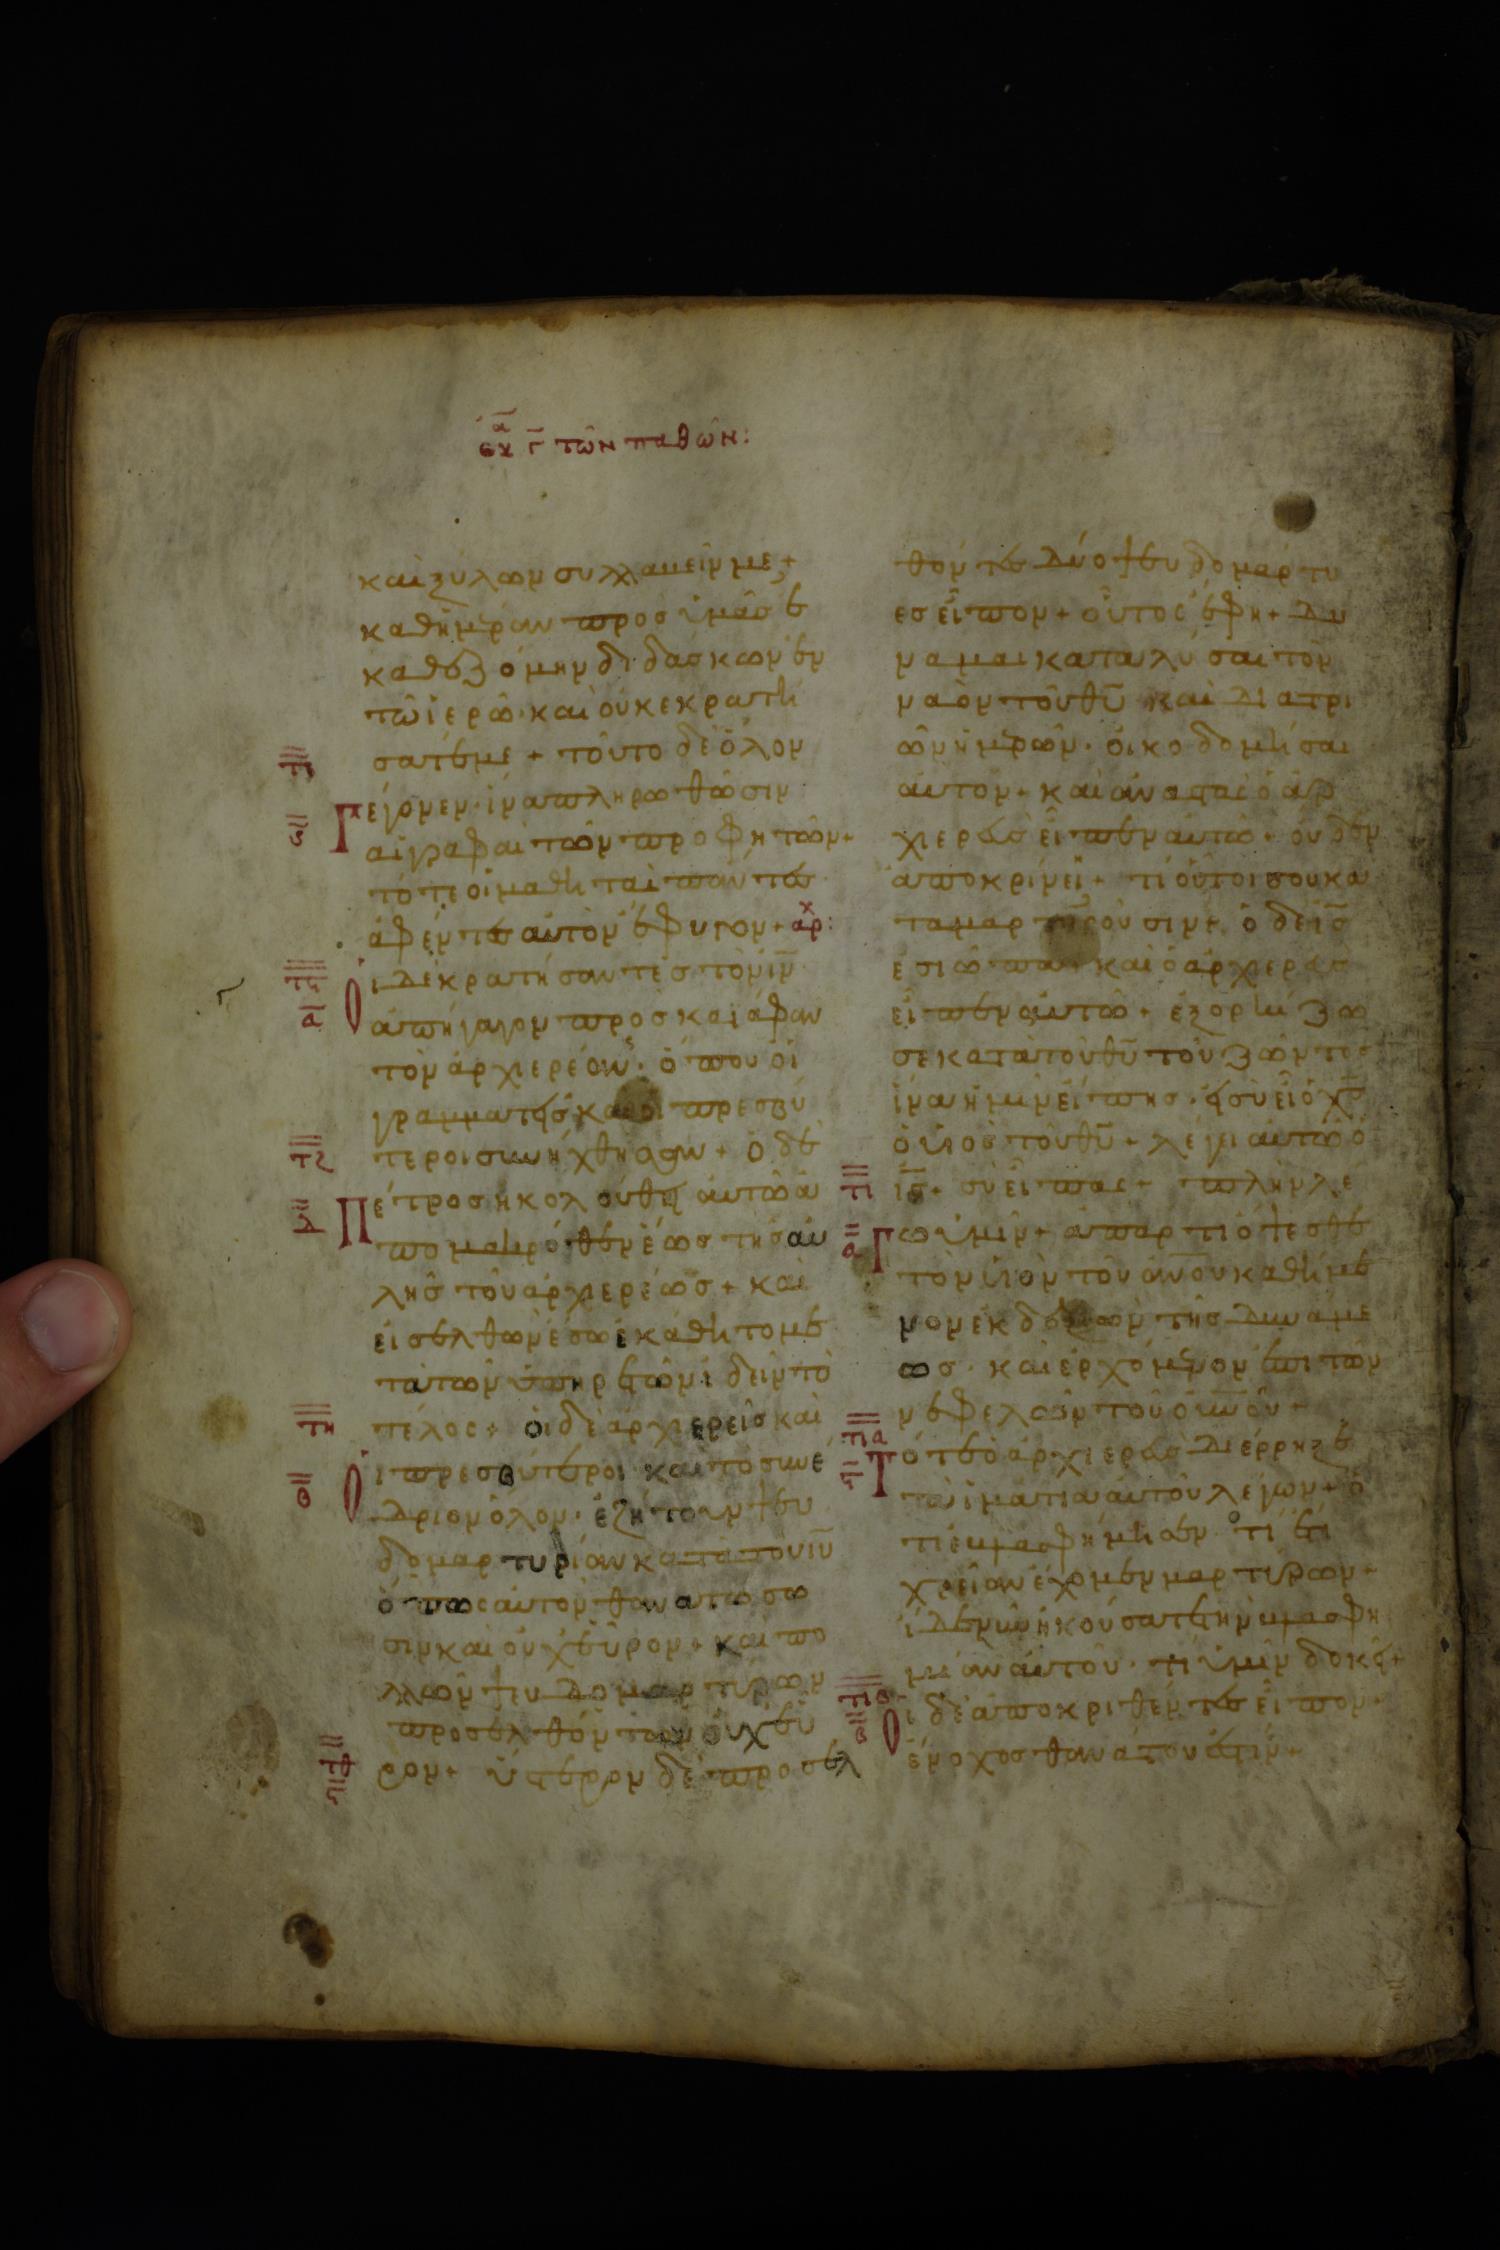 εὐα γ τῶν παθῶν:
καὶ ξύλων συλλαβεῖν με +
καθημέραν πρὸς ὑμᾶς ἐ
καθεζόμην διδάσκων ἐν
τῶ ἱερῶ· καὶ οὐκ ἐκρατή
σατέ με + τοῦτο δὲ ὅλον
τϛ
ϛ
Γέγονεν· ἵνα πληρωθῶσιν
αἱ γραφαὶ τῶν προφητῶν +
τότε οἱ μαθηταὶ πάντες
ἀφέντες αὐτὸν ἔφυγον + ἀρχ:
α
Οἱ δὲ κρατήσαντες τὸν ιν
ἀπήγαγον πρὸς καϊάφαν
τὸν ἀρχιερέαν· ὅπου οἱ
γραμματεῖς καὶ οἱ πρεσβύ
τεροι συνήχθησαν + ὁ δὲ
τζ
δ
Πέτρος ἠκολούθει αὐτῶ ἀ
πο μακρόθεν ἕως τῆς αὐ
λῆς τοῦ ἀρχιερέως + καὶ
εἰσελθὼν ἔσω ἐκάθητο με
τὰ τῶν ὑπηρετῶν ἰδεῖν τὸ
τέλος + οἱ δὲ ἀρχιερεῖς καὶ
τη
Οἱ πρεσβύτεροι καὶ τὸ συνέ
δριον ὅλον· ἐζήτουν ψευ
δομαρτυρίαν κατὰ τοῦ ιυ
ὅπως αὐτὸν θανατώσω
σιν καὶ οὐχ εὗρον + καὶ πο
λλῶν ψευδομαρτύρων
προσελθόντων οὐχ εὗ
ρον + ὕστερον δὲ προσελ
θόντες δύο ψευδομάρτυ
ες εἶπον + οὗτος ἔφη + δύ
ναμαι καταλῦσαι τὸν
ναὸν τοῦ θυ καὶ διὰ τρι
ῶν ἡμερῶν· οἰκοδομῆσαι
αὐτόν + καὶ ἀναστὰς ὁ ἀρ
χιερεὺς εἶπεν αὐτῶ + οὐδὲν
ἀποκρίνει + τί οὗτοί σου κα
ταμαρτυροῦσιν + ὁ δὲ ις
ἐσιώπα + καὶ ὁ ἀρχιερεὺς
εἶπεν αὐτῶ + ἐξορκίζω
σε κατὰ τοῦ θυ τοῦ ζῶντος
ἵνα ἡμῖν εἴπης· εἰ σὺ εἶ ὁ χς
ὁ υἱὸς τοῦ θυ + λέγει αὐτῶ ὁ
ις + σὺ εἶπας + πλὴν λέ
τι
α
Γω ὑμῖν + ἀπάρτι ὄψεσθε
τὸν υἱὸν τοῦ ανου καθήμε
νον ἐκ δεξιῶν τῆς δυνάμε
ως· καὶ ἐρχόμενον ἐπὶ τῶν
νεφελῶν τοῦ οὐνοῦ +
τια
Τότε ὁ ἀρχιερεὺς διέρρηξε
τὰ ἱμάτια αὐτοῦ λέγων + ὅ
τι ἐβλασφήμησεν τί ἔτι
χρείαν ἔχομεν μαρτύρων +
ἴδε νῦν ἠκούσατε τὴν βλασφη
μίαν αὐτοῦ· τί ὑμῖν δοκεῖ +
τιβ
β
Οἱ δὲ ἀποκριθέντες εἶπον·
ἔνοχος θανάτου ἐστίν +